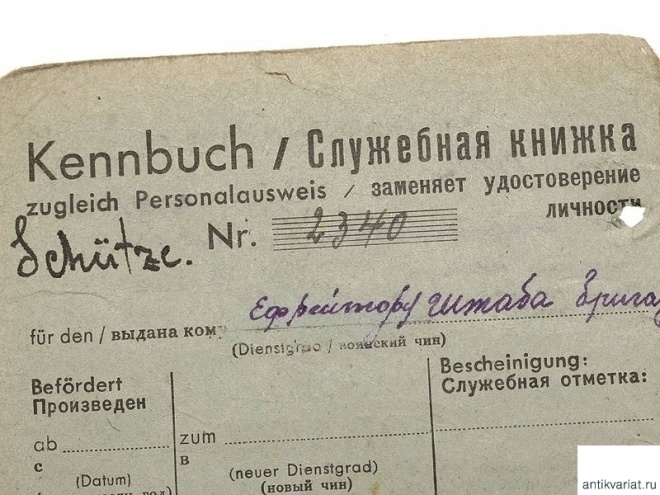 Kennbuch / Служебная книжка
zugleich Personalausweis / заменяет удостоверение
личности
Schütze. Nr. 2340
Ефрейтору штаба
für den / выдана кому
(Dienstgrad / воинский чин)
Befördert
Произведен
Bescheinigung:
Служебная отметка:
ab zum
с в
(Datum) (neuer Dienstgrad)
(новый чин)
antikvariat.ru